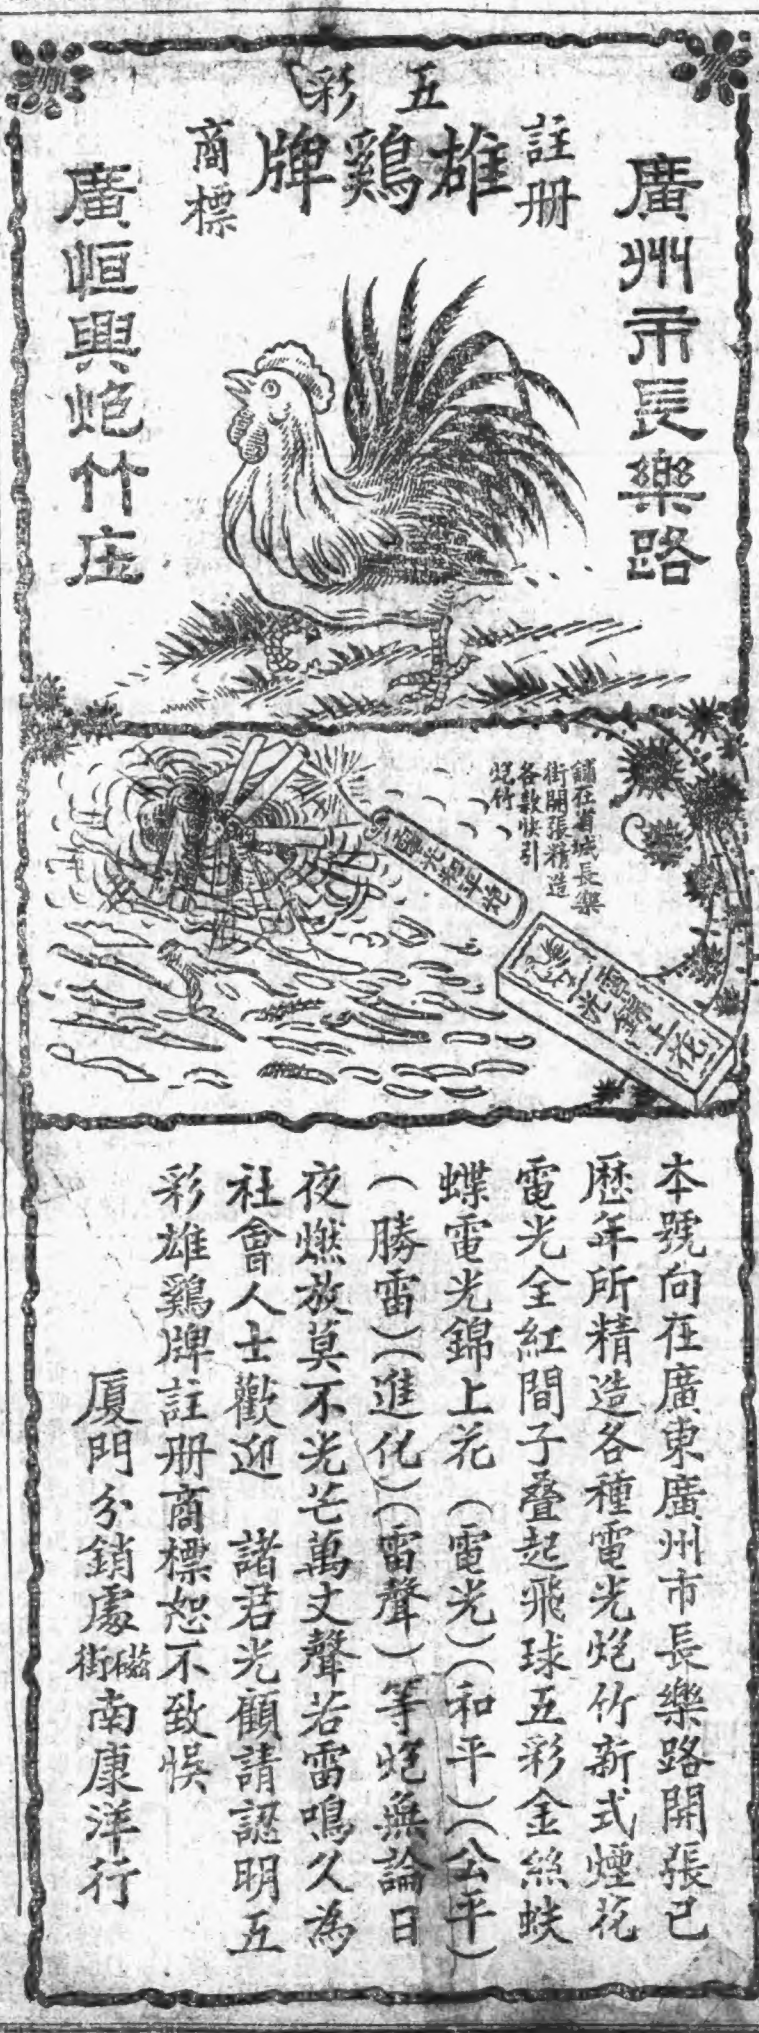 五彩
雄鷄牌
註册
商標
廣州市長樂路
廣恒興炮竹庄
鋪在省城長樂
街開張精造
各款快引
炮竹
電光錦上花
電光錦上花
本號向在廣東廣州市長樂路開張已
歷年所精造各種電光炮竹新式煙花
電光全紅間子叠起飛球五彩金絲蚨
蝶電光錦上花（電光）（和平）（公平）
（勝雷）（進化）（雷聲）等炮無論日
夜燃放莫不光芒萬丈聲若雷鳴久為
社會人士歡迎　諸君光顧請認明五
彩雄鷄牌註册商標恕不致悞
厦門分銷處磁街南康洋行